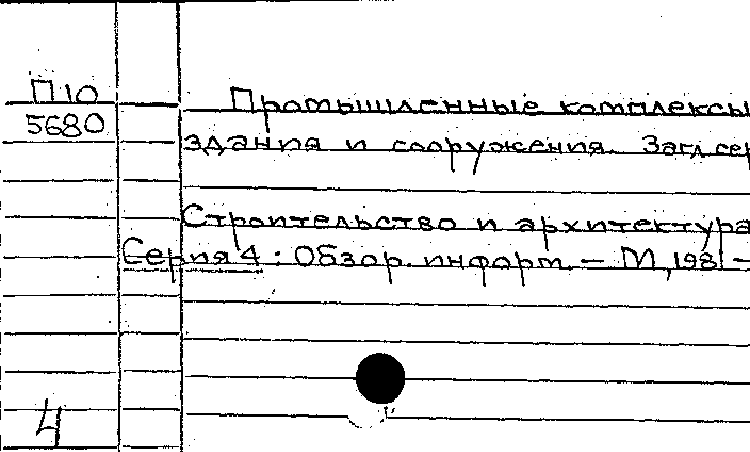 П10
5680
Промышленные комплексы
здания и сооружения. Загл.сер
Строительство и архитектура
Серия 4 : Обзор. информ. – М, 1981 –
4